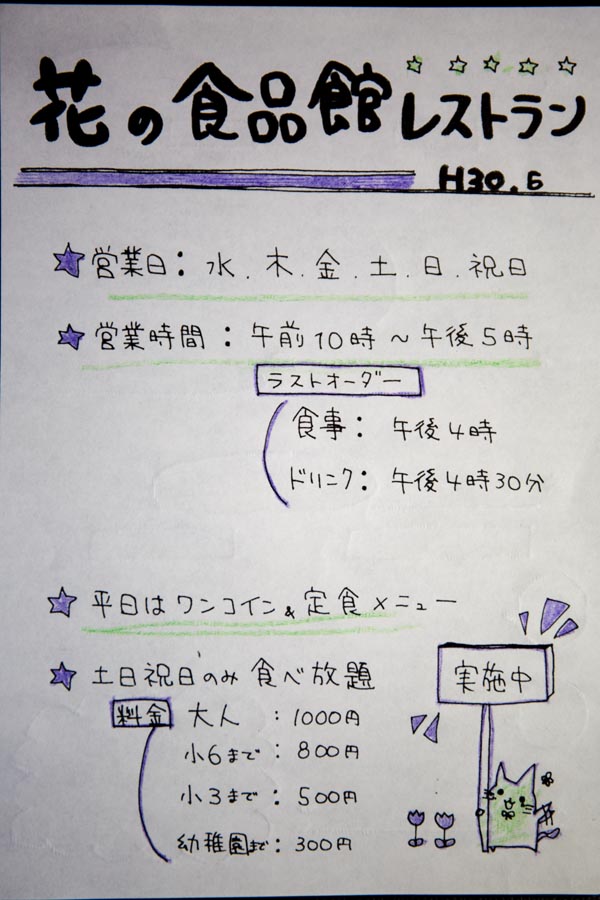 花の食品館レストラン
H30.5
営業日：水.木.金.土.日.祝日
営業時間：午前10時～午後5時
ラストオーダー
食事：午後4時
ドリンク：午後4時30分
平日はワンコイン&定食メニュー
土日祝日のみ食べ放題
実施中
料金 大人：1000円
小6まで：800円
小3まで：500円
幼稚園まで：300円